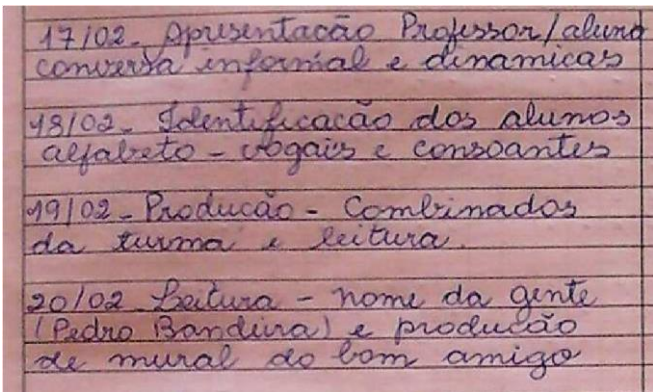 17/02. Apresentacão Professor/aluno
conversa informal e dinamicas
18/02. Identificacão dos alunos
alfabeto - vogais e consoantes
19/02 - Producão - Combinados
da turma e leitura.
20/02 Leitura - nome da gente
(Pedro Bandeira) e producão
de mural do bom amigo